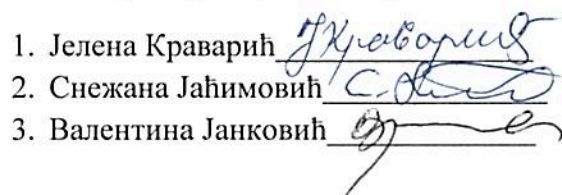 1. Јелена Краварић
2. Снежана Јаћимовић
3. Валентина Јанковић